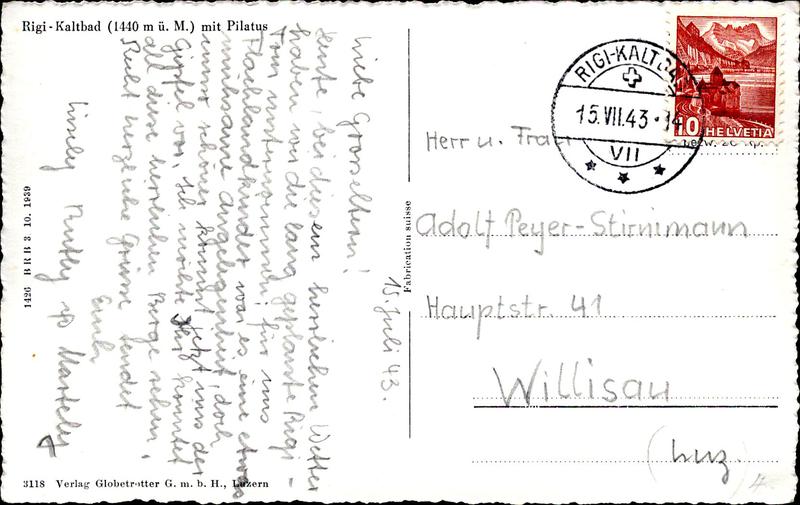 Rigi-Kaltbad (1440 m ü. M.) mit Pilatus
Liebe Grosseltern!
Heute, bei diesem herrlichen Wetter
haben wir die lang geplante Rigi-
Tour unternommen; für uns
Flachlandkinder war es eine etwas
mühsame Angelegenheit, doch
umso schöner kommt jetzt uns der
Gipfel vor. Ich möchte Ihr könntet
all diese herrlichen Berge sehen.
Recht herzliche Grüsse sendet
Euch
15. Juli 43.
1426 BRB 3. 10. 1939
3118 Verlag Globetrotter G. m. b. H., Luzern
Fabrication suisse
RIGI-KALTBAD
15.VII.43.-14
VII
10 HELVETIA
Herr u. Frau
Adolf Peyer-Stirnimann
Hauptstr. 41
Willisau
(Luz.)
4.